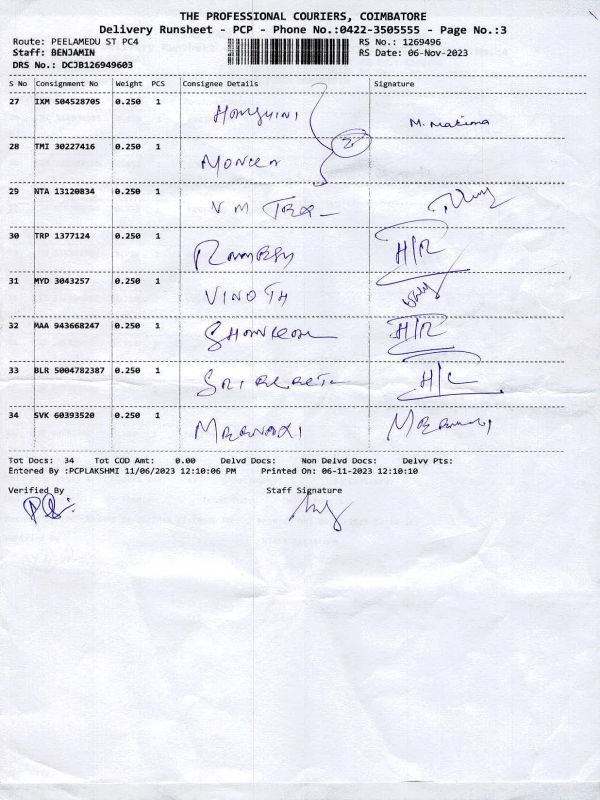 THE PROFESSIONAL COURIERS, COIMBATORE
Delivery Runsheet - PCP - Phone No.:0422-3505555 - Page No.:3
Route: PEELAMEDU ST PC4 RS No.: 1269496
Staff: BENJAMIN RS Date: 06-Nov-2023
DRS No.: DCJB126949603
S No Consignment No Weight PCS Consignee Details Signature
27 IXM 504528705 0.250 1 M. Malima
28 TMI 30227416 0.250 1 2
29 NTA 13120834 0.250 1 V M
30 TRP 1377124 0.250 1 RAMESH H/R
31 MYD 3043257 0.250 1 VINOTH
32 MAA 943668247 0.250 1 H/R
33 BLR 5004782387 0.250 1 H/C
34 SVK 60393520 0.250 1
Tot Docs: 34 Tot COD Amt: 0.00 Delvd Docs: Non Delvd Docs: Delvy Pts:
Entered By :PCPLAKSHMI 11/06/2023 12:10:06 PM Printed On: 06-11-2023 12:10:10
Verified By Staff Signature